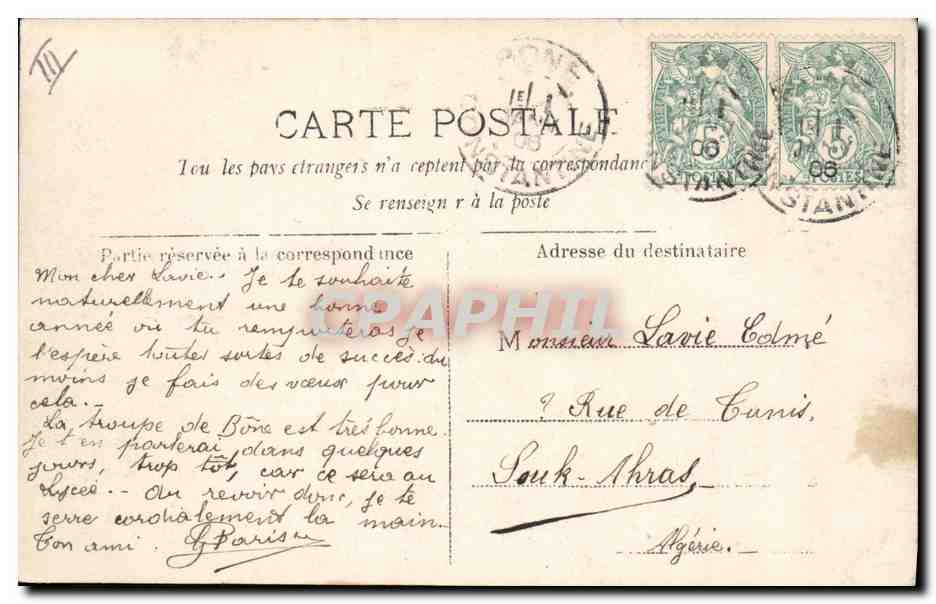 III
BONE
CONSTANTINE
1E
06
CARTE POSTALE
Tou les pays etrangers n'a ceptent par la correspondance
Se renseign r à la poste
5
POSTES
06
STANTINE
5
POSTES
06
STANTINE
Partie réservée à la correspondance
Adresse du destinataire
Mon cher Lavie. Je te souhaite
naturellement une bonne
année où tu remporteras je
l'espère toutes sortes de succès du
moins je fais des vœux pour
cela.-
La troupe de Bône est très bonne
Je t'en parlerai dans quelques
jours, trop tôt, car ce sera au
Lycée.- Au revoir donc, je te
serre cordialement la main.
Ton ami. Paris
Monsieur Lavie Edmé
9 Rue de Tunis.
Souk-Ahras
Algérie.-
CPAPHIL